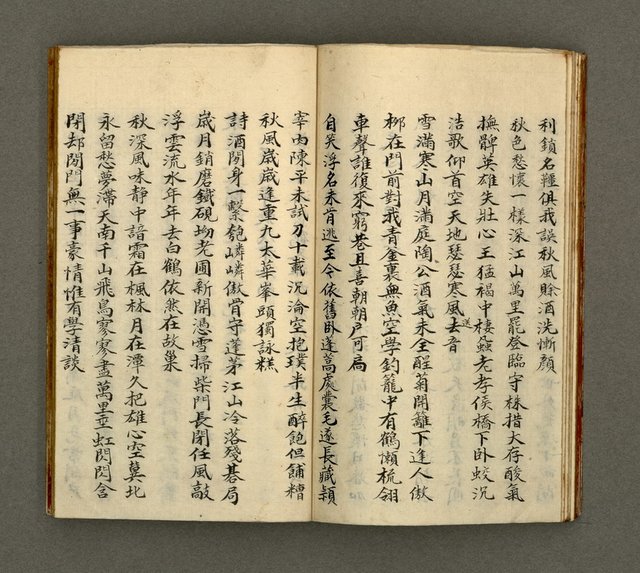 利鎖名韁俱我誤秋風賒酒洗慚顏
秋色愁懷一樣深江山萬里罷登臨守株措大存酸氣
撫髀英雄失壯心王猛褐中棲蝨老孝侯橋下卧蛟沉
浩歌仰首空天地瑟瑟寒風去音
送
雪滿寒山月滿庭陶公酒氣未全醒菊開籬下逢人傲
柳在門前對我青釜裏無魚空學釣籠中有鶴懶梳翎
車聲誰復來窮巷且喜朝朝戶可局
自笑浮名未肯逃至今依舊卧蓬蒿處囊毛遂長藏穎
宰肉陳平未試刀十載沉淪空抱璞半生醉飽但餔糟
秋風歲歲逢重九太華峯頭獨詠糕
詩酒閒身一繫匏嶙嶙傲骨守蓬茅江山冷落殘碁局
歲月銷磨鐵硯坳老圃新開憑雪掃柴門長閉任風敲
浮雲流水年年去白鶴依然在故巢
秋深風味靜中諳霜在楓林月在潭久把雄心空冀北
永留愁夢滯天南千山飛鳥寥寥盡萬里垂虹閃閃含
閉却閒門無一事豪情惟有學清談